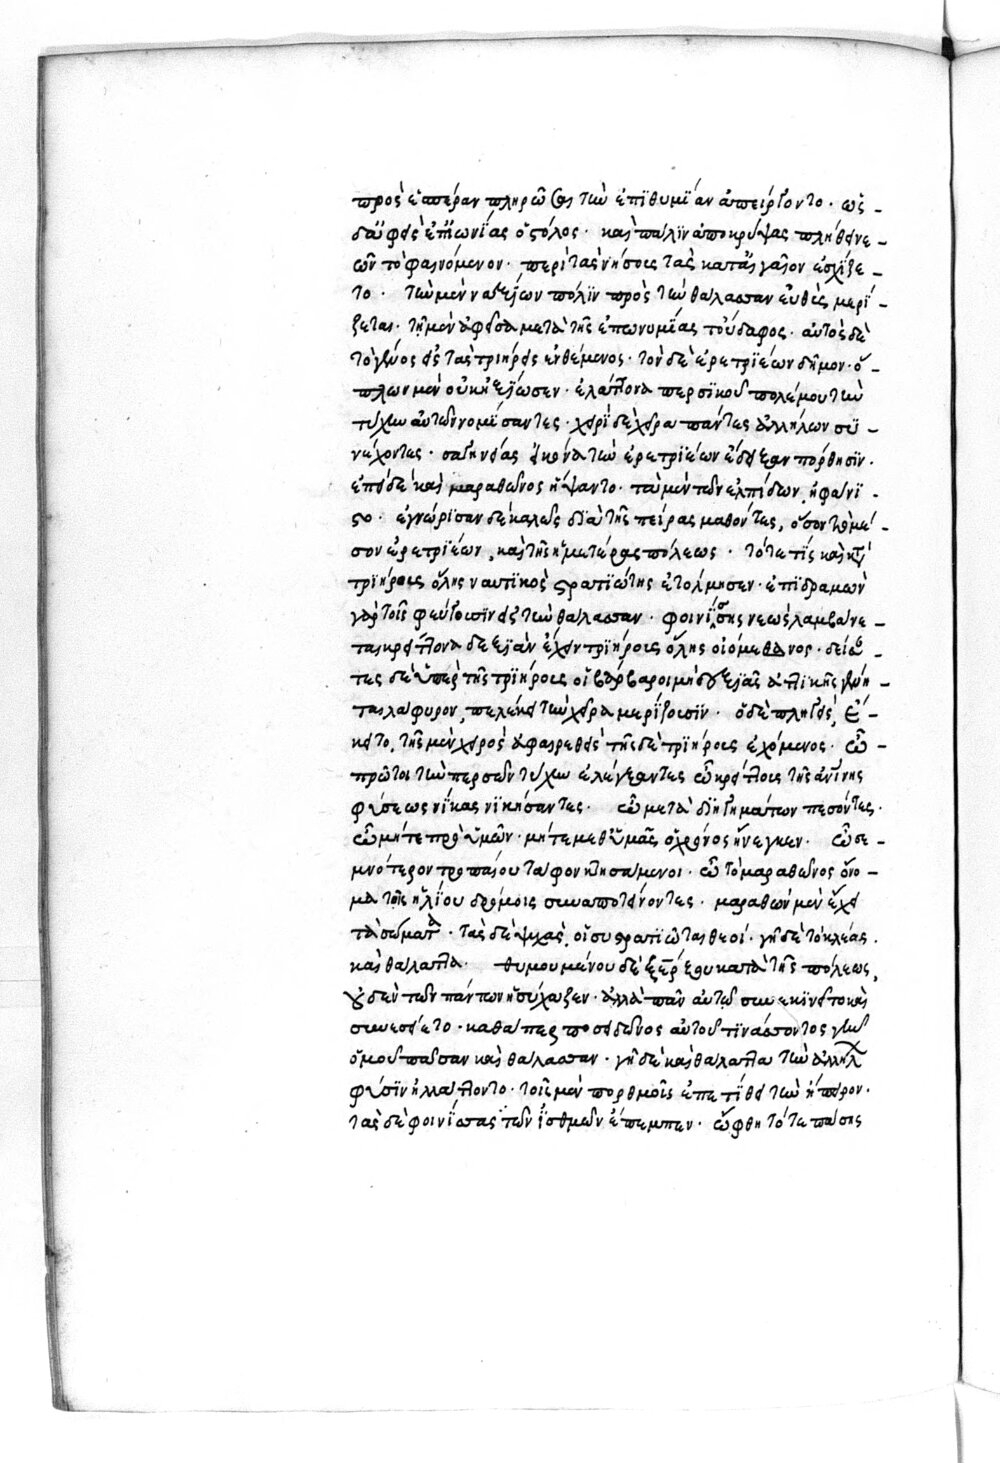 πρὸς ἑσπέραν πληρῶσαι τὴν ἐπιθυμίαν ἠπείργοντο. ὡς
δ' ἀφεὶς ἐπ' ἰωνίας ὁ στόλος. καὶ πάλιν ἀποκρύψας πλήθει νε-
ῶν τὸ φαινόμενον. περὶ τὰς νήσους τὰς κατ' αἰγαῖον ἐσχίζε-
το. τὴν μὲν ναξίων πόλιν πρὸς τὴν θάλασσαν εὐθὺς μερί-
ζεται. τὴν μὲν ἀφεῖσα μετὰ τῆς ἐπωνυμίας τοὔδαφος. αὐτὸς δὲ
τὸ γένος εἰς τὰς τριήρεις ἐνθέμενος. τὸν δὲ ἐρετριέων δῆμον. ὅ-
πλων μὲν οὐκ ἠξίωσεν. ἐλάττονα περσικοῦ πολέμου τὴν
τύχην αὐτῶν νομίσαντες. χειρὶ δὲ χεῖρα πάντες ἀλλήλων συ-
νέχοντες. σαγηνείας εἰκόνα τὴν ἐρετριέων ἔδειξαν πόρθησιν.
ἐπεὶ δὲ καὶ μαραθῶνος ἥψαντο. τὰ μὲν τῶν ἐλπίδων ἠφάνι-
στο. ἐγνώρισαν δὲ καλῶς διὰ τῆς πείρας μαθόντες, ὅσον τὸ μέ-
σον ἐρετριέων, καὶ τῆς ἡμετέρας πόλεως. τότε τὶς καὶ κατὰ
τριήρους ὅλης ναυτικὸς στρατιώτης ἐτόλμησεν. ἐπιδραμὼν
γὰρ τοῖς φεύγουσιν εἰς τὴν θάλασσαν. φοινίσσης νεὼς λαμβάνε-
ται κρείττονα δεξιὰν ἔχων τριήρους ὅλης οἰόμενος. δείσαν-
τες δὲ ὑπὲρ τῆς τριήρους οἱ βάρβαροι μὴ δεξιᾶς ἀττικῆς γένη-
ται λάφυρον, πελέκει τὴν χεῖρα μερίζουσιν. ὁ δὲ πληγεὶς ἔ-
κειτο, τῆς μὲν χειρὸς ἀφαιρεθεὶς τῆς δὲ τριήρους ἐχόμενος. ὦ
πρῶτοι τὴν περσῶν τύχην ἐλέγξαντες ὦ κρείττους τῆς ἀνθρωπίνης
φύσεως νίκας νικήσαντες. ὦ μετὰ διηγημάτων πεσόντες.
ὦ μήτε πρὸ ὑμῶν. μήτε μεθ' ὑμᾶς ὁ χρόνος ἤνεγκεν. ὦ σε-
μνότερον τροπαίου τάφον κτησάμενοι. ὦ τὸ μαραθῶνος ὄνο-
μα τοῖς ἡλίου δρόμοις συναποτείνοντες. μαραθὼν μὲν ἔχει
τὰ σώματα. τὰς δὲ ψυχὰς, οἱ συστρατιῶται θεοί. γῆ δὲ τὸ κλέος.
καὶ θάλαττα. θυμουμένου δὲ ξέρξου κατὰ τῆς πόλεως,
οὐδὲν τῶν πάντων ἡσύχαζεν. ἀλλὰ πᾶν αὐτῷ συνεκινεῖτο καὶ
συνεσείετο. καθάπερ ποσειδῶνος αὐτοῦ τινάσσοντος γῆν
ὁμοῦ πᾶσαν καὶ θάλασσαν. γῆ δὲ καὶ θάλαττα τὴν ἀλλήλων
φύσιν ἠλλάττοντο. τοῖς μὲν πορθμοῖς ἐπετίθει τὴν ἤπειρον.
τὰς δὲ φοινίσσας τῶν ἰσθμῶν ἔπεμπεν. ὤφθη τότε πάσης